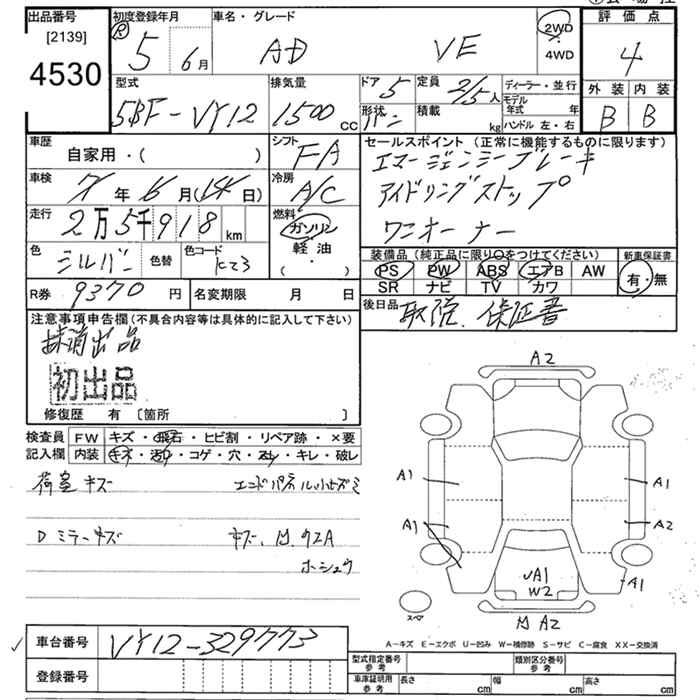 出品番号
[2139]
4530
初度登録年月
Ⓡ 5 6 月
車名・グレード
AD VE
2WD
4WD
評価点
4
外装 内装
B B
型式
5BF-VY12
排気量
1500 cc
ドア 5
定員 2/5 人
形状 バン
積載 kg
ディーラー・並行
モデル年式 年
ハンドル 左・右
車歴
自家用・( )
シフト
FA
車検
7 年 6 月(14 日)
冷房
A/C
走行
2万5千918 km
燃料
ガソリン
軽油
・
( )
色
シルバー
色替
色コード
K23
R券 9370 円
名変期限 月 日
セールスポイント(正常に機能するものに限ります)
エマージェンシーブレーキ
アイドリングストップ
ワンオーナー
装備品(純正品に限り○をつけてください)
新車保証書
PS PW ABS エアB AW
SR ナビ TV カワ
有・無
後日品
取説、保証書
注意事項申告欄(不具合内容等は具体的に記入して下さい)
抹消出品
初出品
修復歴 有 〔箇所 〕
検査員 FW キズ・飛石・ヒビ割・リペア跡・×要
記入欄 内装 キズ・汚れ・コゲ・穴・スレ・キレ・破レ
荷室キズ
エンドパネル小キズミ
Dミラーキズ
キズ、M、クエA
ホシュウ
A2
A1 A1
A1 A2
A1
UA1
W2
スペア
M A2
A-キズ E-エクボ U-凹み W-補修跡 S-サビ C-腐食 XX-交換済
車台番号 VY12-329773
登録番号
型式指定番号 参考
類別区分番号 参考
車庫証明用 参考 長さ cm 幅 cm 高さ cm